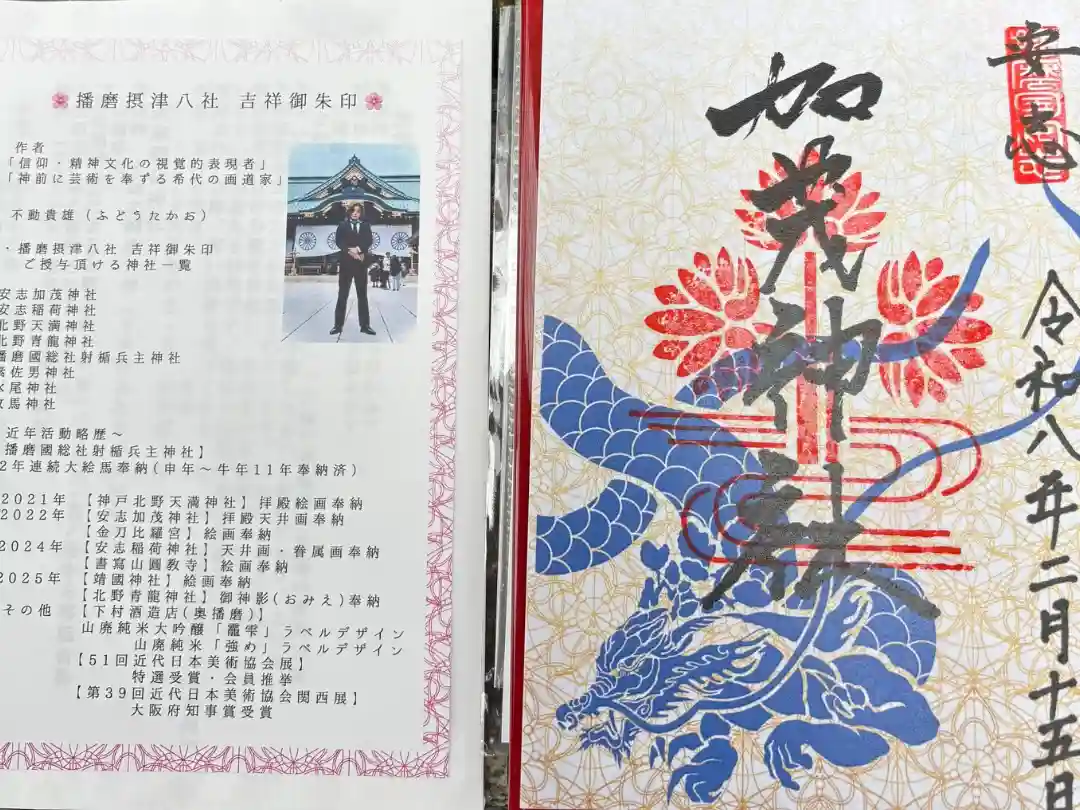 播磨摂津八社 吉祥御朱印
作者
「信仰・精神文化の視覚的表現者」
「神前に芸術を奉ずる希代の画道家」
不動貴雄(ふどうたかお)
・播磨摂津八社 吉祥御朱印
ご授与頂ける神社一覧
安志加茂神社
安志稲荷神社
北野天満神社
北野青龍神社
播磨國総社射楯兵主神社
佐男神社
水尾神社
馬神社
近年活動略歴~
播磨國総社射楯兵主神社】
2年連続大絵馬奉納(申年~牛年11年奉納済)
2021年 【神戸北野天満神社】拝殿絵画奉納
2022年 【安志加茂神社】拝殿天井画奉納
【金刀比羅宮】絵画奉納
2024年 【安志稲荷神社】天井画・眷属画奉納
【書寫山圓教寺】絵画奉納
2025年 【靖國神社】絵画奉納
【北野青龍神社】御神影(おみえ)奉納
その他 【下村酒造店(奥播磨)】
山廃純米大吟醸「龗雫」ラベルデザイン
山廃純米「強め」ラベルデザイン
【51回近代日本美術協会展】
特選受賞・会員推挙
【第39回近代日本美術協会関西展】
大阪府知事賞受賞
安志
加茂神社
令和八年二月十五日